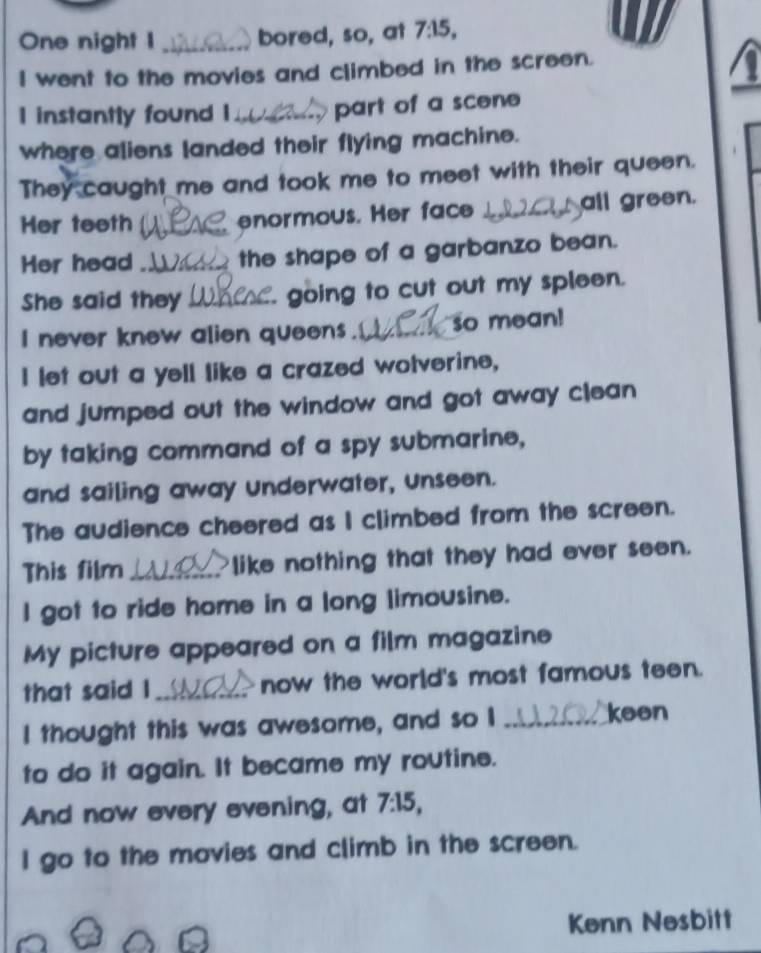 One night I was bored, so, at 7:15,
I went to the movies and climbed in the screen.
I instantly found I was part of a scene
where aliens landed their flying machine.
They caught me and took me to meet with their queen.
Her teeth were enormous. Her face was all green.
Her head was the shape of a garbanzo bean.
She said they where going to cut out my spleen.
I never knew alien queens were so mean!
I let out a yell like a crazed wolverine,
and jumped out the window and got away clean
by taking command of a spy submarine,
and sailing away underwater, unseen.
The audience cheered as I climbed from the screen.
This film was like nothing that they had ever seen.
I got to ride home in a long limousine.
My picture appeared on a film magazine
that said I was now the world's most famous teen.
I thought this was awesome, and so I was keen
to do it again. It became my routine.
And now every evening, at 7:15,
I go to the movies and climb in the screen.
Kenn Nesbitt